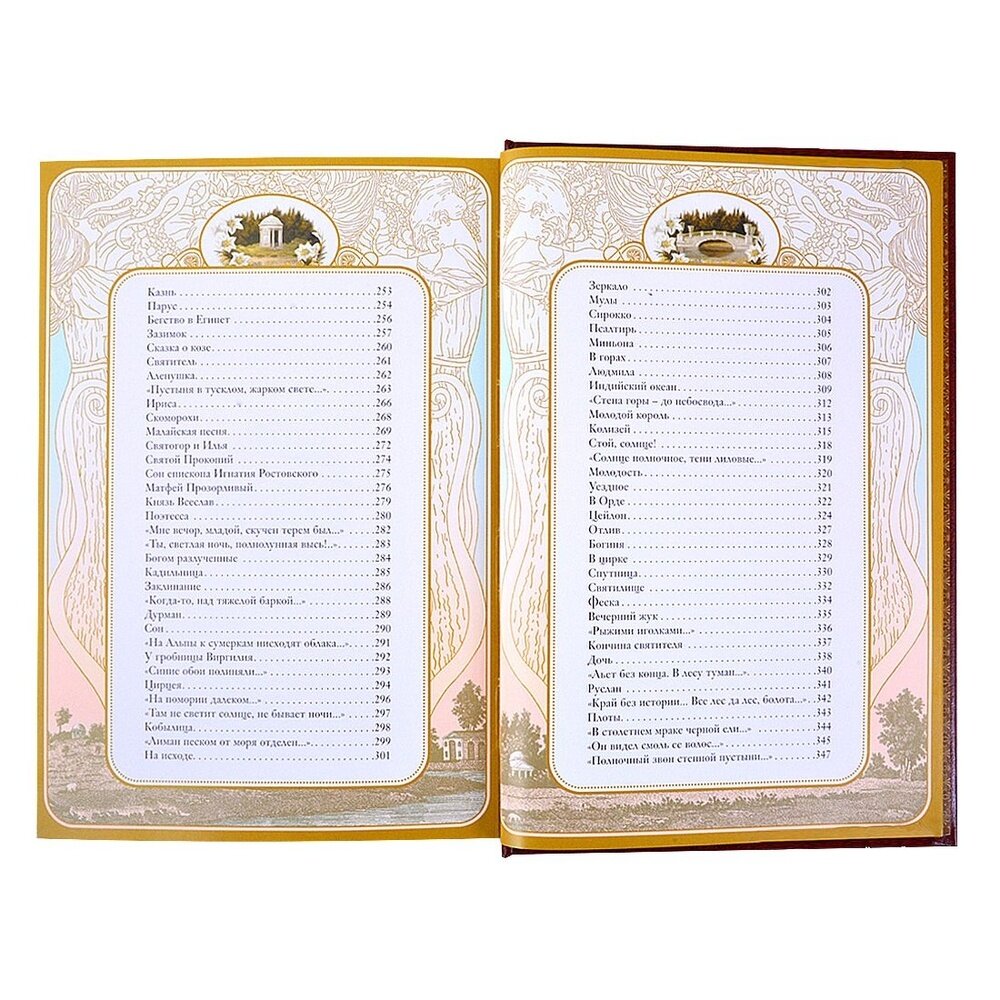 Казнь 253
Парус 254
Бегство в Египет 256
Зазимок 257
Сказка о козе 260
Святитель 261
Аленушка 262
«Пустыня в тусклом, жарком свете...» 263
Ириса 266
Скоморохи 268
Малайская песня 269
Святогор и Илья 272
Святой Прокопий 274
Сон епископа Игнатия Ростовского 275
Матфей Прозорливый 276
Князь Всеслав 279
Поэтесса 280
«Мне вечор, младой, скучен терем был...» 282
«Ты, светлая ночь, полнолунная высь!..» 283
Богом разлученные 284
Кадильница 285
Заклинание 286
«Когда-то, над тяжелой баркой...» 288
Дурман 289
Сон 290
«На Альпы к сумеркам нисходят облака...» 291
У гробницы Виргилия 292
«Синие обои полиняли...» 293
Цирцея 294
«На помории далеком...» 296
«Там не светит солнце, не бывает ночи...» 297
Кобылица 298
«Лиман песком от моря отделен...» 299
На исходе 301
Зеркало 302
Мулы 303
Сирокко 304
Псалтирь 305
Миньона 306
В горах 307
Людмила 308
Индийский океан 309
«Стена горы – до небосвода...» 312
Молодой король 313
Колизей 315
Стой, солнце! 318
«Солнце полночное, тени лиловые...» 319
Молодость 320
Уездное 321
В Орде 322
Цейлон 324
Отлив 327
Богиня 328
В цирке 329
Спутница 330
Святилище 332
Феска 334
Вечерний жук 335
«Рыжими иголками...» 336
Кончина святителя 337
Дочь 338
«Льет без конца. В лесу туман...» 340
Руслан 341
«Край без истории... Все лес да лес, болота...» 342
Плоты 343
«В столетнем мраке черной ели...» 344
«Он видел смоль ее волос...» 345
«Полночный звон степной пустыни...» 347